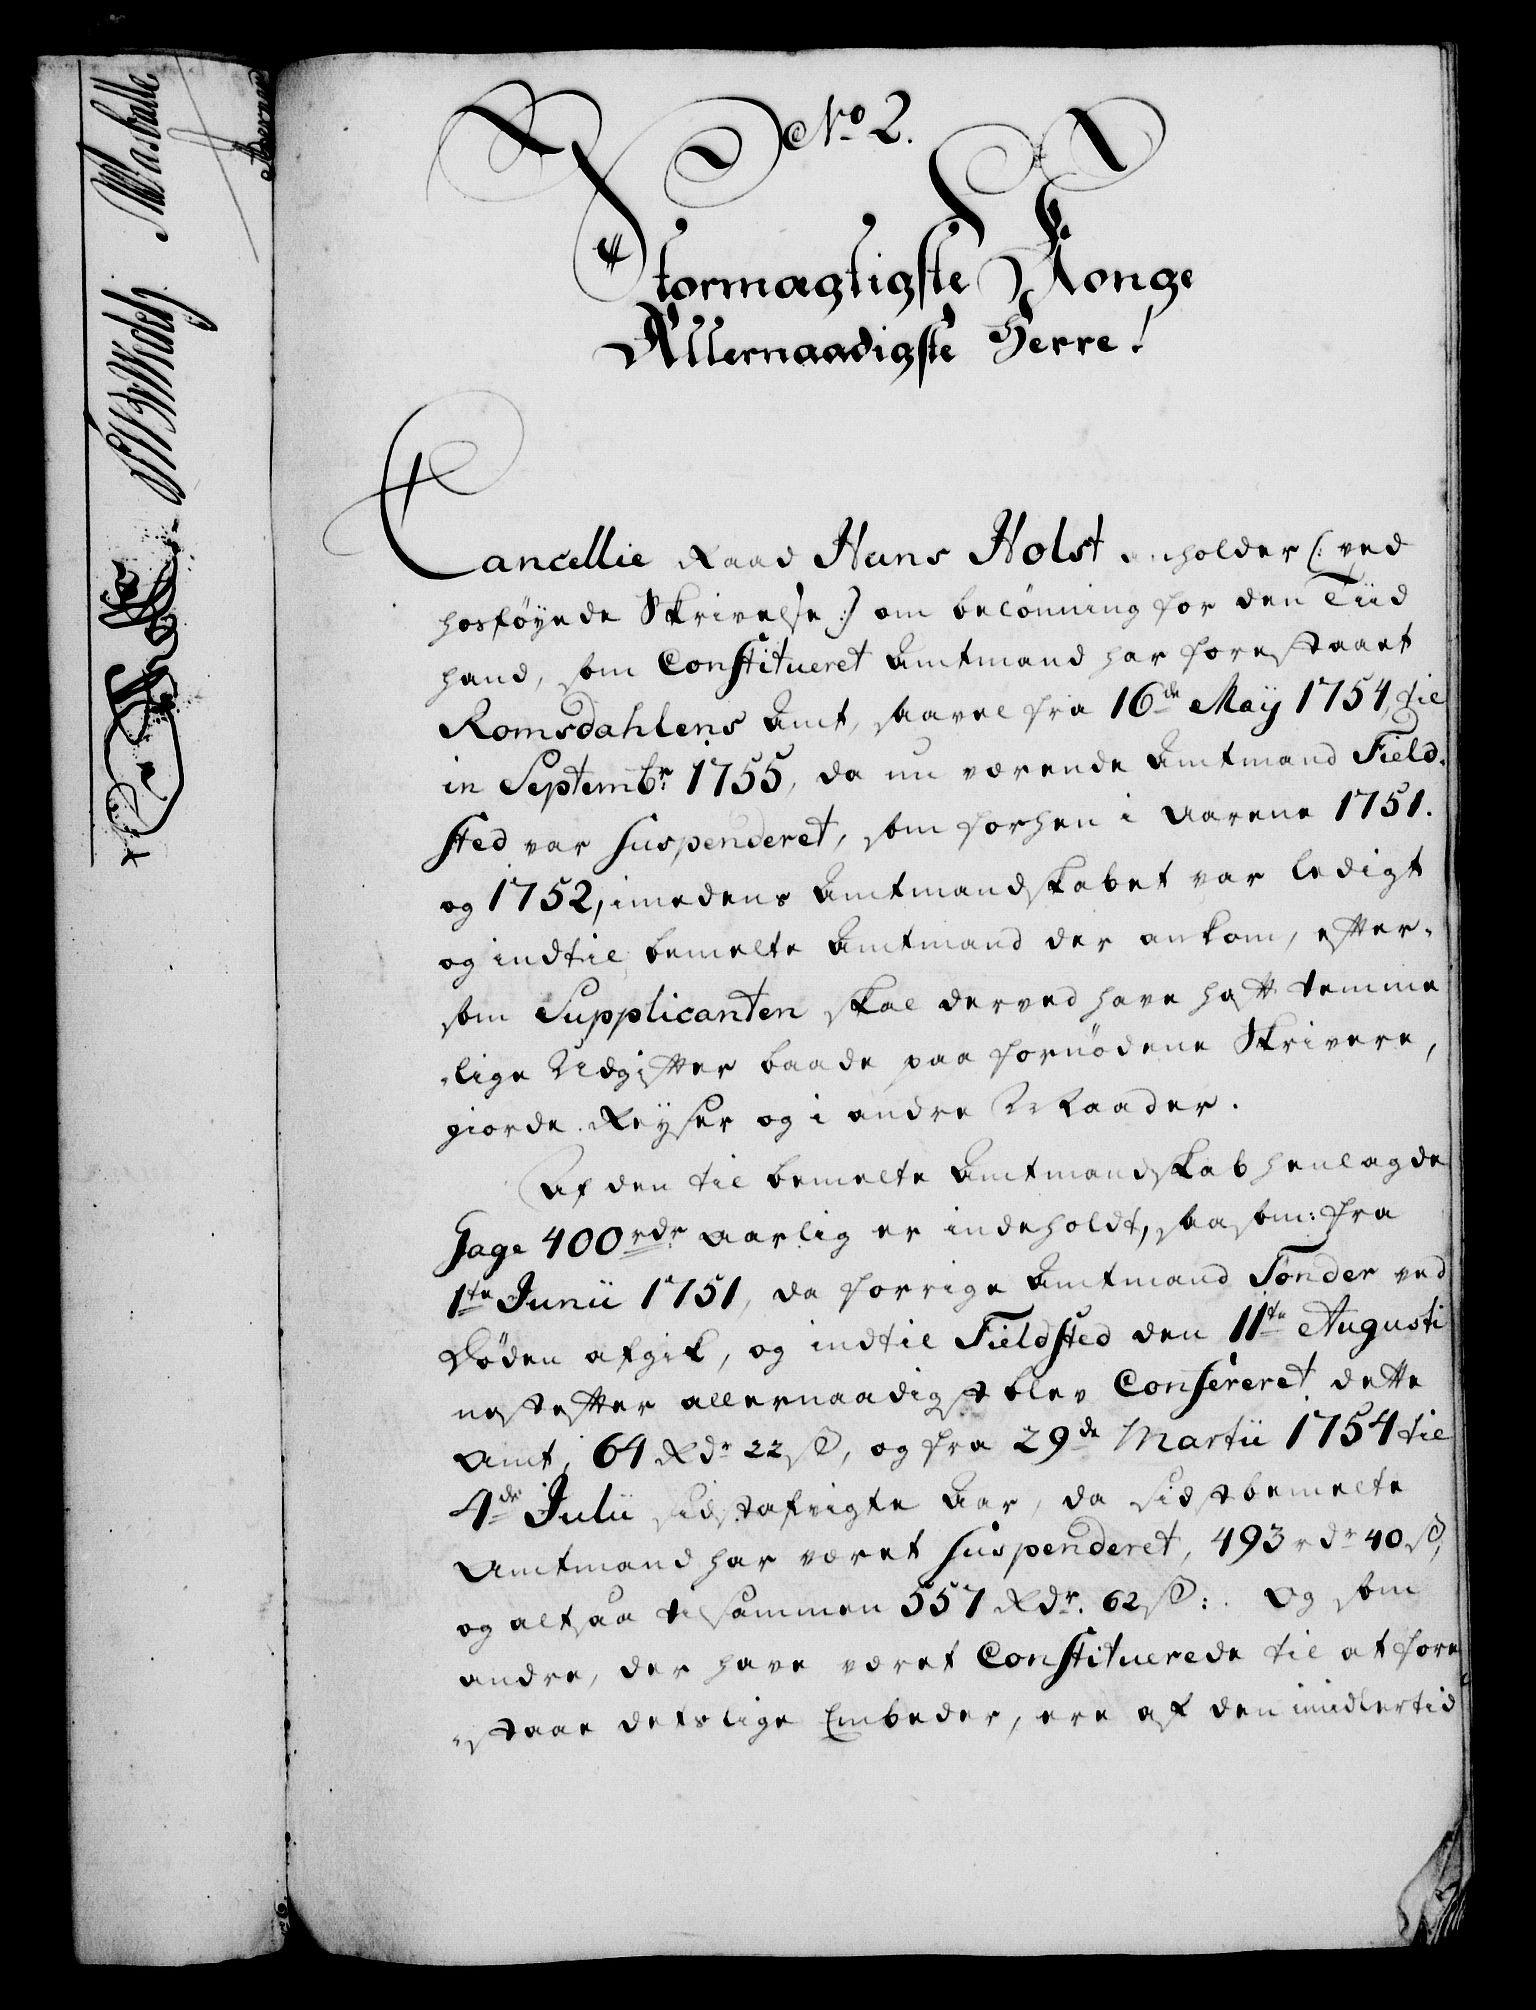 No 2.
Stormægtigste Konge
Allernaadigste Herre!
Cancellie Raad Hans Holst anholder (: ved
hosføyede Skrivelse :) om belønning for den Tiid
hand, som Constitueret Amtmand har forestaaet
Romsdahlens Amt, saavel fra 16de Maij 1754, til
in Septembr: 1755, da nu værende Amtmand Field-
sted var suspenderet, som forhen i Aarene 1751.
og 1752, imedens Amtmandskabet var ledigt
og indtil bemelte Amtmand der ankom, efter-
som Supplicanten skal derved have haft temme
-lige Udgifter baade paa fornødene Skrivere,
giorde Reyser og i andre Maader.
Af den til bemelte Amtmandskab henlagde
Gage 400 rdr aarlig er indeholdt, saasom: fra
1te Junii 1751, da forrige Amtmand Tønder ved
Døden afgik, og indtil Fieldsted den 11te Augusti
nestefter allernaadigst blev Confereret dette
Amt, 64 Rdr 22 s, og fra 29de Martii 1754 til
4de Julii sidstafvigte Aar, da sidstbemelte
Amtmand har været suspenderet, 493 rdr 40 s,
og altsaa tilsammen 557 Rdr. 62 s: Og som
andre, der have været Constituerede til at fore
-staae deslige Embeder, ere af den imidlertid